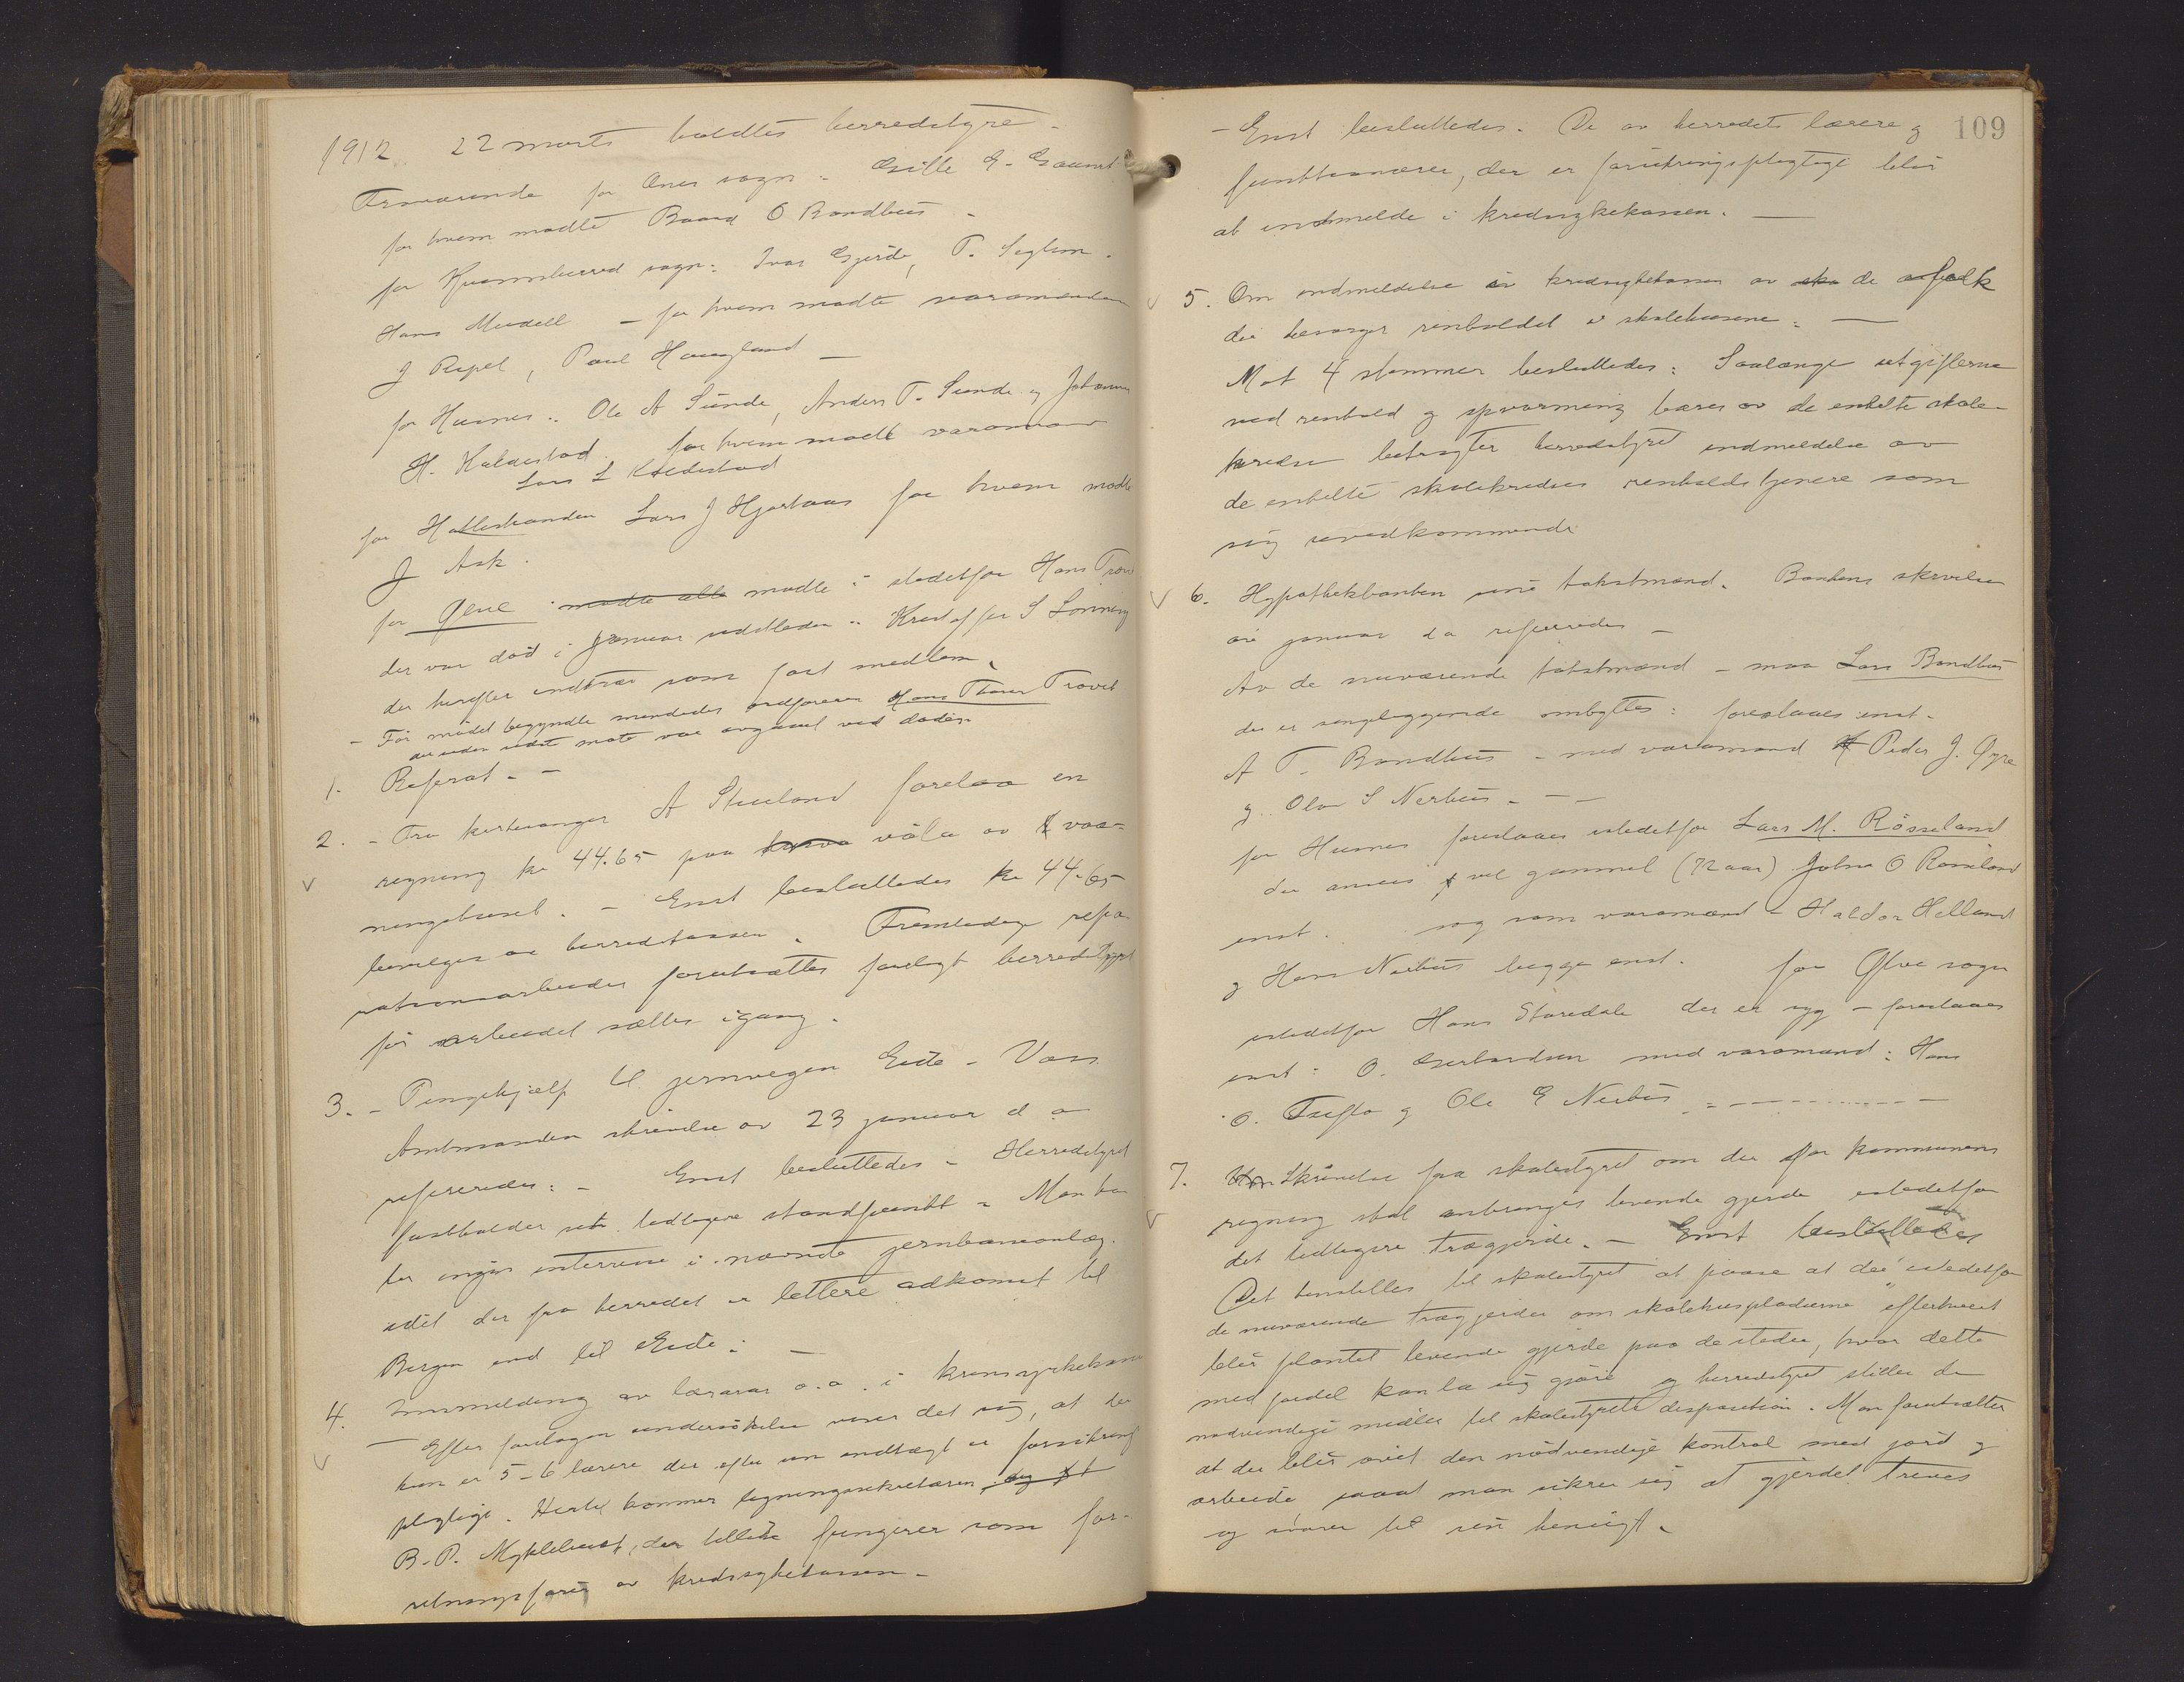 1912 22 marts holdtes herredstyre -
Fraværende for Ænes sogn:
for hvem mødte Baard O Bondhus -
for Kvamsherred sogn: Ivar Gjerde, T. Seglem.
Hans Mudell - for hvem mødte varamænden
J Ripel, Paul Haugland -
for Husnes: Ole A Sunde, Anders T. Sunde og Johannes
H. Kaldestad. for hvem mødte varamand
Lars L Kaldestad
for Hatlestranden Lars J Hjortaas for hvem mødte
J Ask.
for Ølve mødte alle mødte i stedetfor Hans
der var død i januar Kristoffer S Lønning
der herefter indtrær som fast medlem.
- Før mødet begyndte mindedes ordføreren Hans
siden sidste møte var avgaaet ved døden
1. Referat. -
2. - Fra kirkeverger A forelaa en
regning kr 44.65 paa av
. - Enst besluttedes kr 44.65
beviliges av herredskassen. Fremtidige repa-
rationsarbeider forutsættes forelagt herredstyret
før arbeidet sættes igang.
3. - Pengehjælp til jernvegen Eide - Voss
Amtmandens skrivelse av 23 januar d a
refereredes: - Enst besluttedes - Herredstyret
fastholder sit tidligere standpunkt - Man har
her ingen interesse i nævnte jernbaneanlæg.
idet der fra herredet er lettere adkomst til
Bergen end til Eide: -
4. Innmelding av lærarar o.a. i krinssykekassa
- Efter foretagen undersøkelse viser det sig, at der
kun er 5-6 lærere der efter sin indtægt er forsikrings
pligtige. Hertil kommer ligningssekretæren og
B. P. Myklebust, der tillike fungerer som for-
retningsfører av kredssykekassen. -
109
- Enst besluttedes. De av herredets lærere og
funktionærer, der er forsikringspligtige blir
at indmelde i kredssykekassen. -
5. Om indmeldelse i kredssykekassen av de folk
der besørger renholdet i skolehusene: -
Mot 4 stemmer besluttedes: Saalænge utgifterne
ved renhold og opvarming bæres av de enkelte skole-
kredse betragter herredstyret indmeldelse av
de enkelte skolekredses renholdstjenere som
sig uvedkommende
6. Hypothekbanken sine takstmænd. Bankens skrivelse
av januar d a refereredes -
Av de nuværende takstmænd - maa Lars Bondhus
der er sengeliggende ombyttes: foreslaaes enst.
A T. Bondhus - med varamænd Peder J. Øyre
og Olav S Nerhus. - -
for Husnes foreslaaes istedetfor Lars M. Røsseland
der ansees vel gammel (72 aar) Johs O Røsseland
enst. og som varamænd - Haldor Helland
og Hans Neshus begge enst. for Ølve sogn
istedetfor Hans Storedale der er syg - foreslaaes
enst: O. med varamænd: Hans
O. Tufta og Ole E
7. Skrivelse fra skolestyret om der for kommunens
regning skal anbringes levende gjerde istedetfor
det tidligere trægjerde. - Enst besluttedes
Det henstilles til skolestyret at paase at der istedetfor
de nuværende trægjerder om skolehuspladserne efterhvert
blir plantet levende gjerde paa de steder, hvor dette
med fordel kan la sig gjøre og herredstyret stiller de
nødvendige midler til skolestyrets disposition. Man forutsætter
at der blir øvet den nødvendige kontrol med jord og
arbeide saaat man sikrer sig at gjerdet trives
og svarer til sin hensigt.